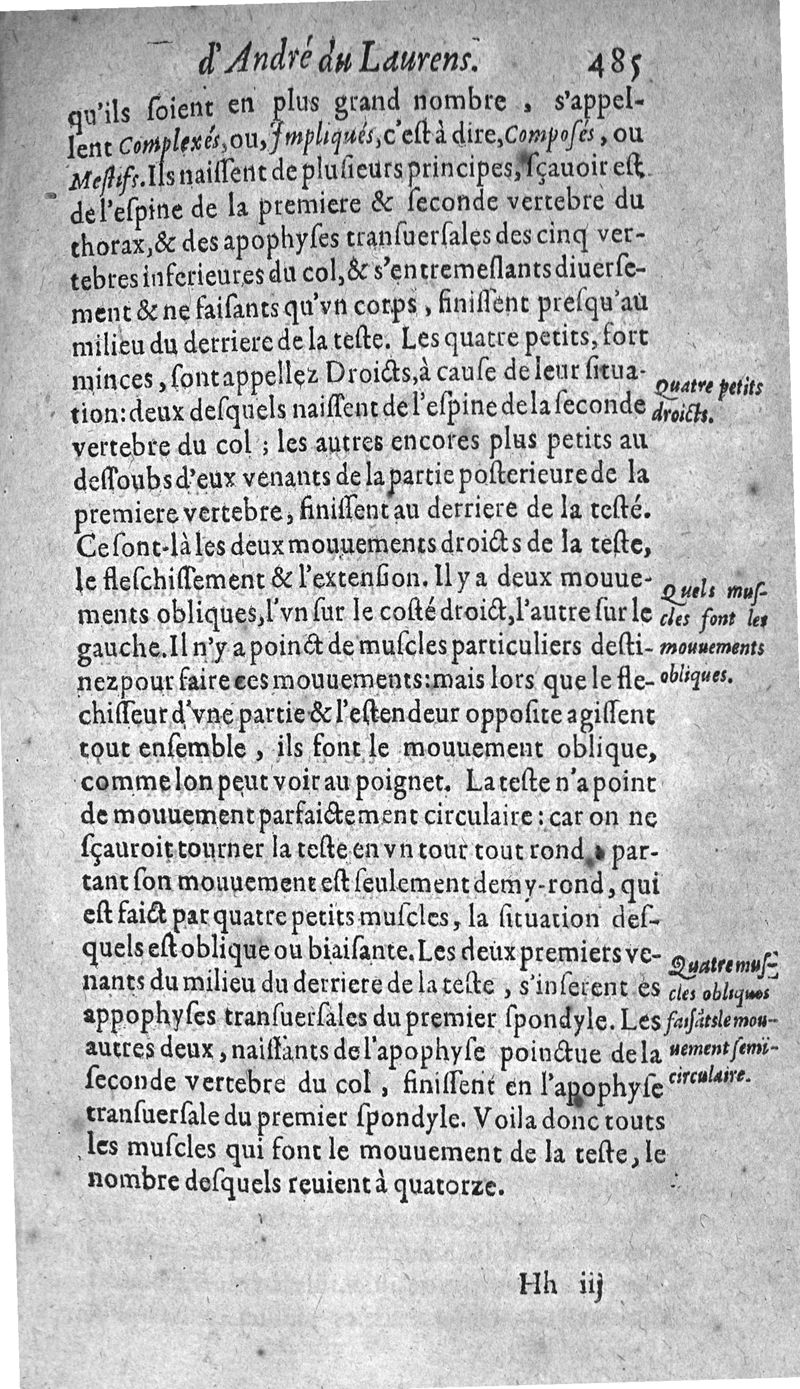 d'André du Laurens. 485
qu'ils ſoient en plus grand nombre, s'appel-
lent Complexés, ou, Impliqués, c'eſt à dire, Composés, ou
Meſtifs. Ils naiſſent de pluſieurs principes, ſçauoir eſt
de l'eſpine de la premiere & ſeconde vertebre du
thorax, & des apophyſes tranſuerſales des cinq ver-
tebres inferieures du col, & s'entremeſlants diuerſe-
ment & ne faiſants qu'vn corps, finiſſent preſqu'au
milieu du derriere de la teſte. Les quatre petits, fort
minces, ſont appellez Droicts, à cauſe de leur ſitua-
tion: deux deſquels naiſſent de l'eſpine de la ſeconde
Quatre petits
droicts.
vertebre du col; les autres encores plus petits au
deſſoubs d'eux venants de la partie poſterieure de la
premiere vertebre, finiſſent au derriere de la teſté.
Ce ſont-là les deux mouuements droicts de la teſte,
le fleſchiſſement & l'extenſion. Il y a deux mouue-
ments obliques, l'vn ſur le coſté droict, l'autre ſur le
gauche. Il n'y a poinct de muſcles particuliers deſti-
nez pour faire ces mouuements: mais lors que le fle-
Quels muſ-
cles font les
mouuements
obliques.
chiſſeur d'vne partie & l'eſtendeur oppoſite agiſſent
tout enſemble, ils font le mouuement oblique,
comme lon peut voir au poignet. La teſte n'a point
de mouuement parfaictement circulaire: car on ne
ſçauroit tourner la teſte en vn tour tout rond, par-
tant ſon mouuement eſt ſeulement demy-rond, qui
eſt faict par quatre petits muſcles, la ſituation deſ-
quels eſt oblique ou biaiſante. Les deux premiers ve-
nants du milieu du derriere de la teſte, s'inſerent és
appophyſes tranſuerſales du premier ſpondyle. Les
autres deux, naiſſants de l'apophyſe poinctue de la
ſeconde vertebre du col, finiſſent en l'apophyſe
Quatre muſ-
cles obliques
faiſāts le mou-
uement ſemi-
circulaire.
tranſuerſale du premier ſpondyle. Voila donc touts
les muſcles qui font le mouuement de la teſte, le
nombre deſquels reuient à quatorze.
Hh iij